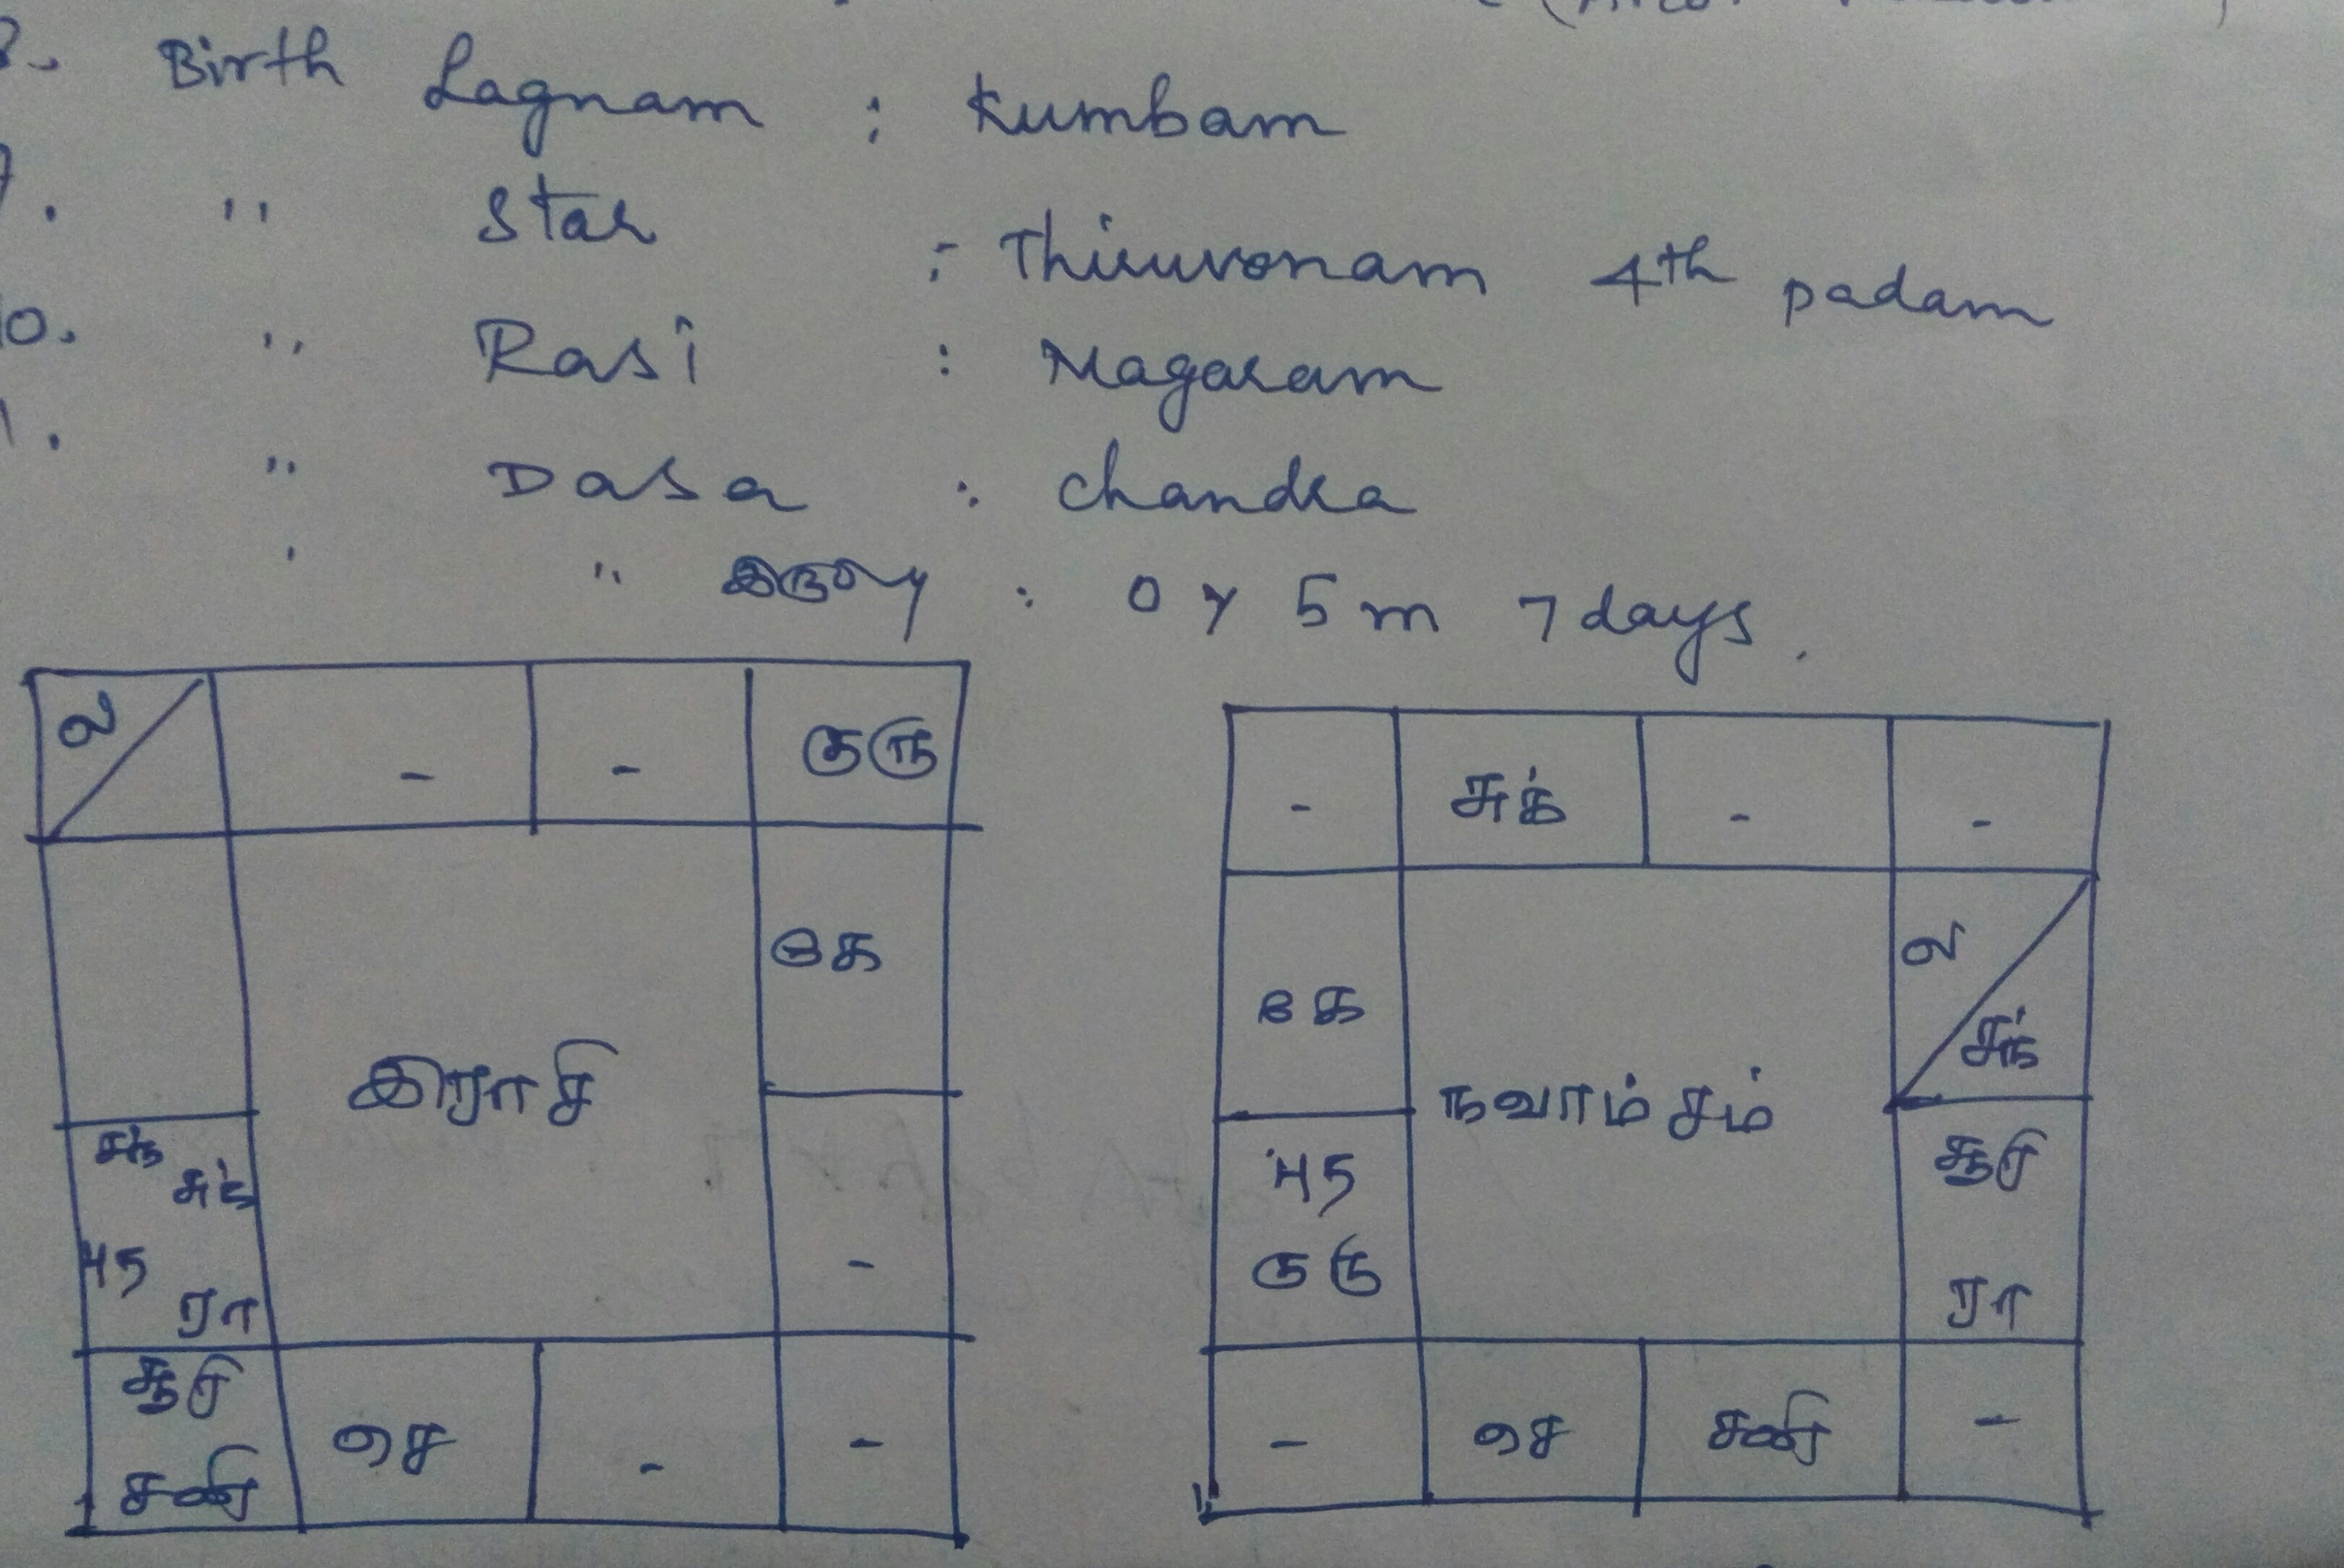 Birth Lagnam : Kumbam
" Star : Thiruvonam 4th padam
10. " Rasi : Magaram
" Dasa : Chandra
" இருப்பு : 0 y 5 m 7 days.
ல - - குரு
கே
இராசி
சந் சுக்
புத ரா
-
சூரி
சனி
செ - -
- சுக் - -
கே
ல
சந்
நவாம்சம்
புத
குரு
சூரி
ரா
- செ சனி -